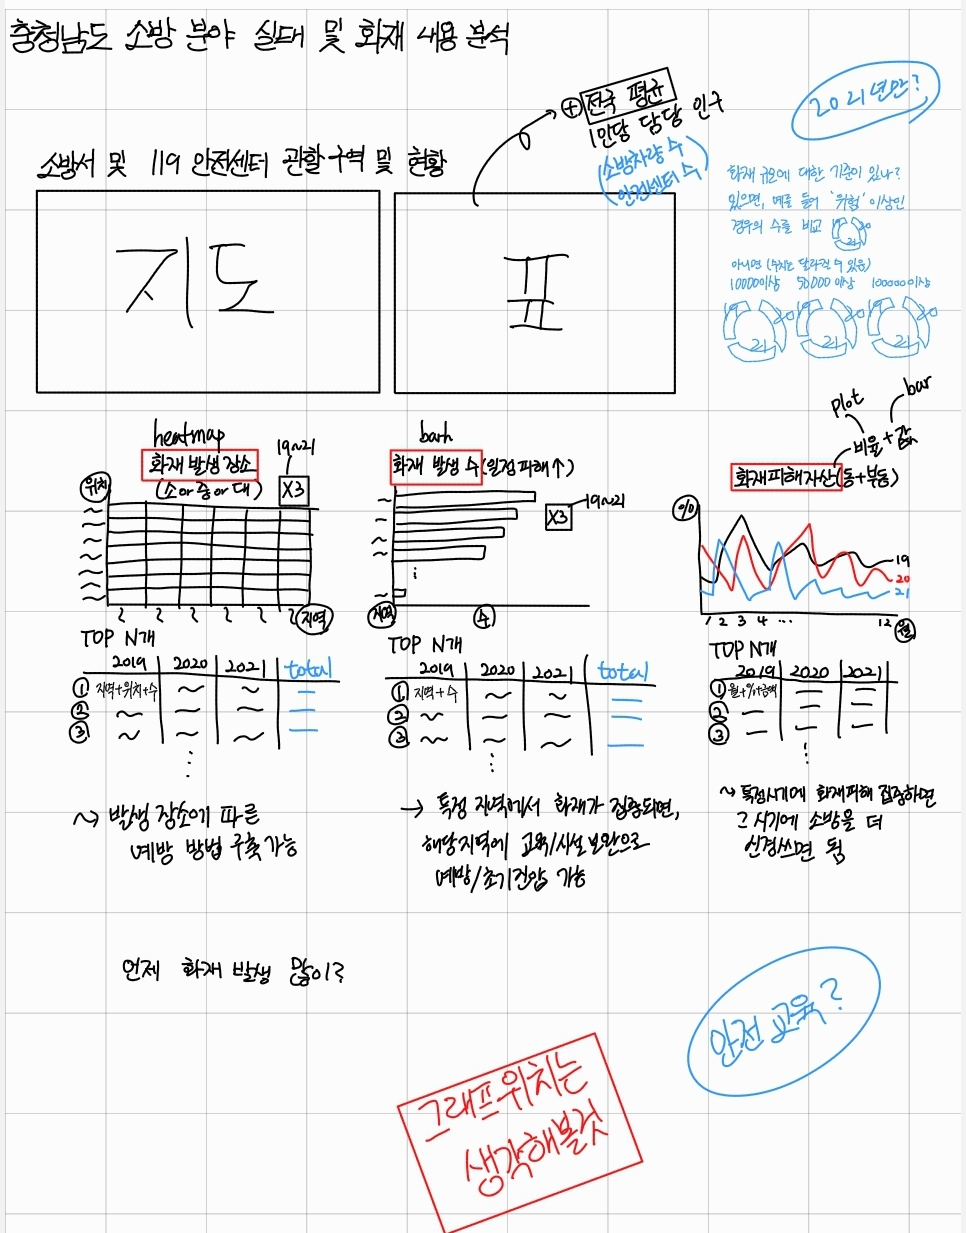 충청남도 소방 분야 실태 및 화재 내용 분석
2021년만?
+ 전국 평균
1인당 담당 인구
(소방차량 수
안전센터 수)
소방서 및 119 안전센터 관할구역 및 현황
지도
표
화재 규모에 대한 기준이 있나?
있으면, 예를 들어 '위험' 이상인
경우의 수를 비교
19 20 21
아니면 (수치는 달라질 수 있음)
10000이상 50000이상 100000이상
19 20 21
19 20 21
19 20 21
heatmap
화재 발생 장소
(소 or 중 or 대)
19~21
X3
위치
지역
TOP N개
2019 2020 2021 total
① 지역+위치+수
②
③
~> 발생 장소에 따른
예방 방법 구축 가능
barh
화재 발생 수 (인접피해↑)
X3
19~21
지역
수
TOP N개
2019 2020 2021 total
① 지역+수
②
③
→ 특정 지역에서 화재가 집중되면,
해당지역에 교육/시설 보완으로
예방/초기진압 가능
plot
bar
비율+값
화재피해자산(동+부동)
%
19
20
21
1 2 3 4 ... 12 월
TOP N개
2019 2020 2021
① 월+%+금액
②
③
~> 특정시기에 화재피해 집중하면
그 시기에 소방을 더
신경쓰면 됨
언제 화재 발생 많이?
안전교육?
그래프위치는
생각해볼것